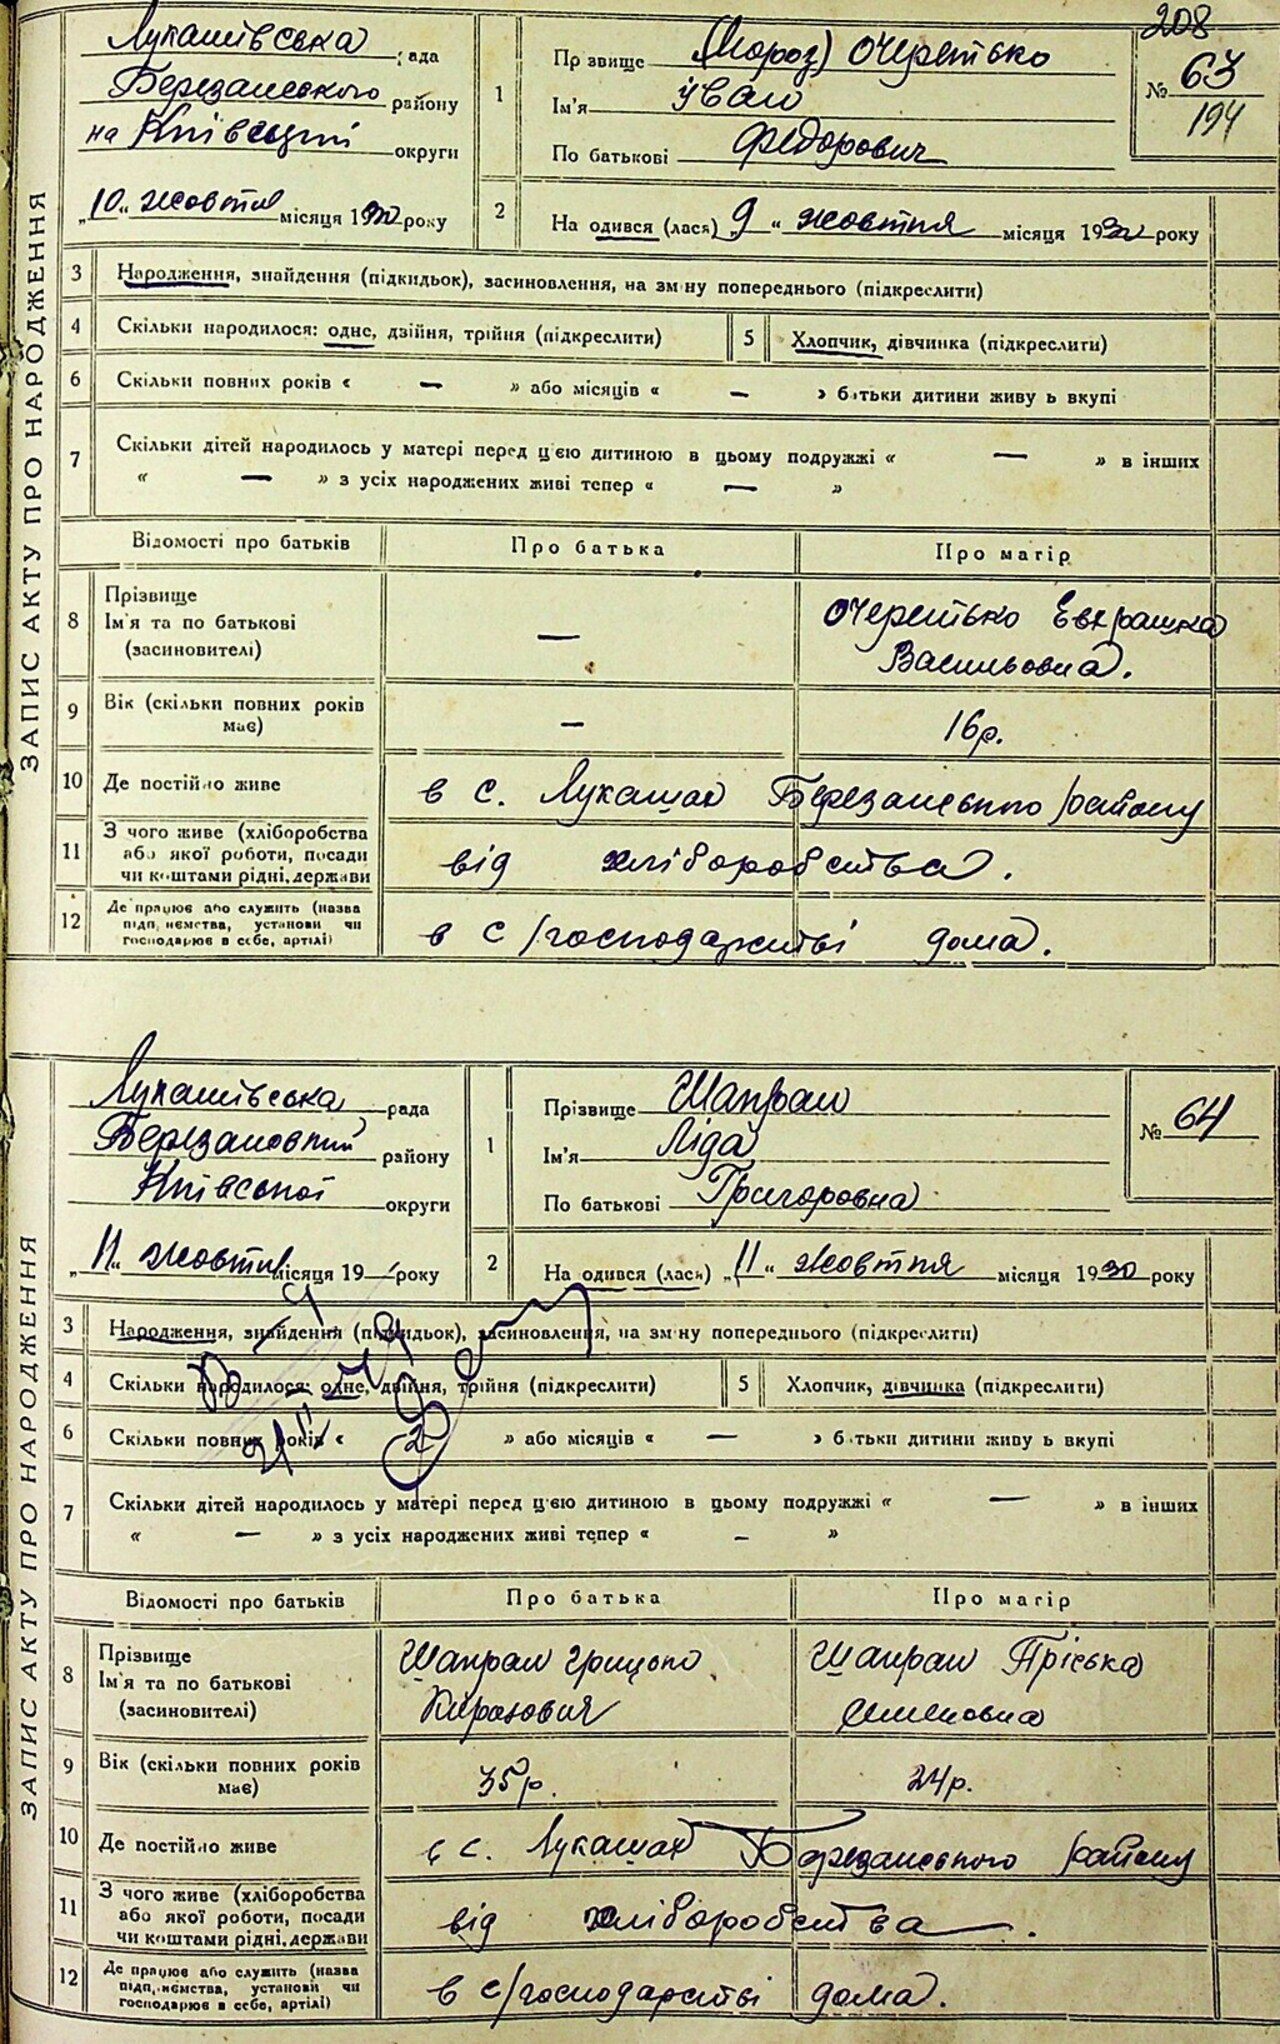 208
ЗАПИС АКТУ ПРО НАРОДЖЕННЯ
Лукашівська рада
Березанського району
на Київщині округи
„10“ жовтня місяця 1930 року
1
Прізвище (Мороз) Очеретько
Ім'я Іван
По батькові Федорович
№ 63
194
2
На одився (лася) „9“ жовтня місяця 1930 року
3 Народження, знайдення (підкидьок), засиновлення, на зм ну попереднього (підкреслити)
4 Скільки народилося: одне, двійня, трійня (підкреслити)
5 Хлопчик, дівчинка (підкреслити)
6 Скільки повних років « — » або місяців « — » батьки дитини живу ь вкупі
7 Скільки дітей народилось у матері перед цією дитиною в цьому подружжі « — » в інших
« — » з усіх народжених живі тепер « — »
Відомості про батьків Про батька Про матір
8 Прізвище
Ім'я та по батькові
(засиновителі)
—
Очеретько Евхрашка
Васильовна.
9 Вік (скільки повних років
має)
— 16 р.
10 Де постійно живе в с. Лукашах Березанського району
11 З чого живе (хліборобства
або якої роботи, посади
чи коштами рідні, держави
від хліборобства.
12 Де працює або служить (назва
підп, иємства, установи чи
господарює в себе, артілі)
в с/господарстві дома.
ЗАПИС АКТУ ПРО НАРОДЖЕННЯ
Лукашівська рада
Київської округи
„11“ жовтня місяця 19— року
1
Прізвище Шапран
Ім'я Ліда
По батькові Григоровна
№ 64
2
На одився (лася) „11“ жовтня місяця 1930 року
3 Народження, знайдення (підкидьок), засиновлення, на зм ну попереднього (підкреслити)
4 Скільки народилося: одне, двійня, трійня (підкреслити)
5 Хлопчик, дівчинка (підкреслити)
6 Скільки повних років « 2 » або місяців « — » батьки дитини живу ь вкупі
7 Скільки дітей народилось у матері перед цією дитиною в цьому подружжі « — » в інших
« — » з усіх народжених живі тепер « — »
Відомості про батьків Про батька Про матір
8 Прізвище
Ім'я та по батькові
(засиновителі)
Шапран Грицько
Шапран Пріська
Семеновна
9 Вік (скільки повних років
має)
35 р. 24 р.
10 Де постійно живе в с. Лукашах Березанського району
11 З чого живе (хліборобства
або якої роботи, посади
чи коштами рідні, держави
від хліборобства.
12 Де працює або служить (назва
підп, иємства, установи чи
господарює в себе, артілі)
в с/господарстві дома.